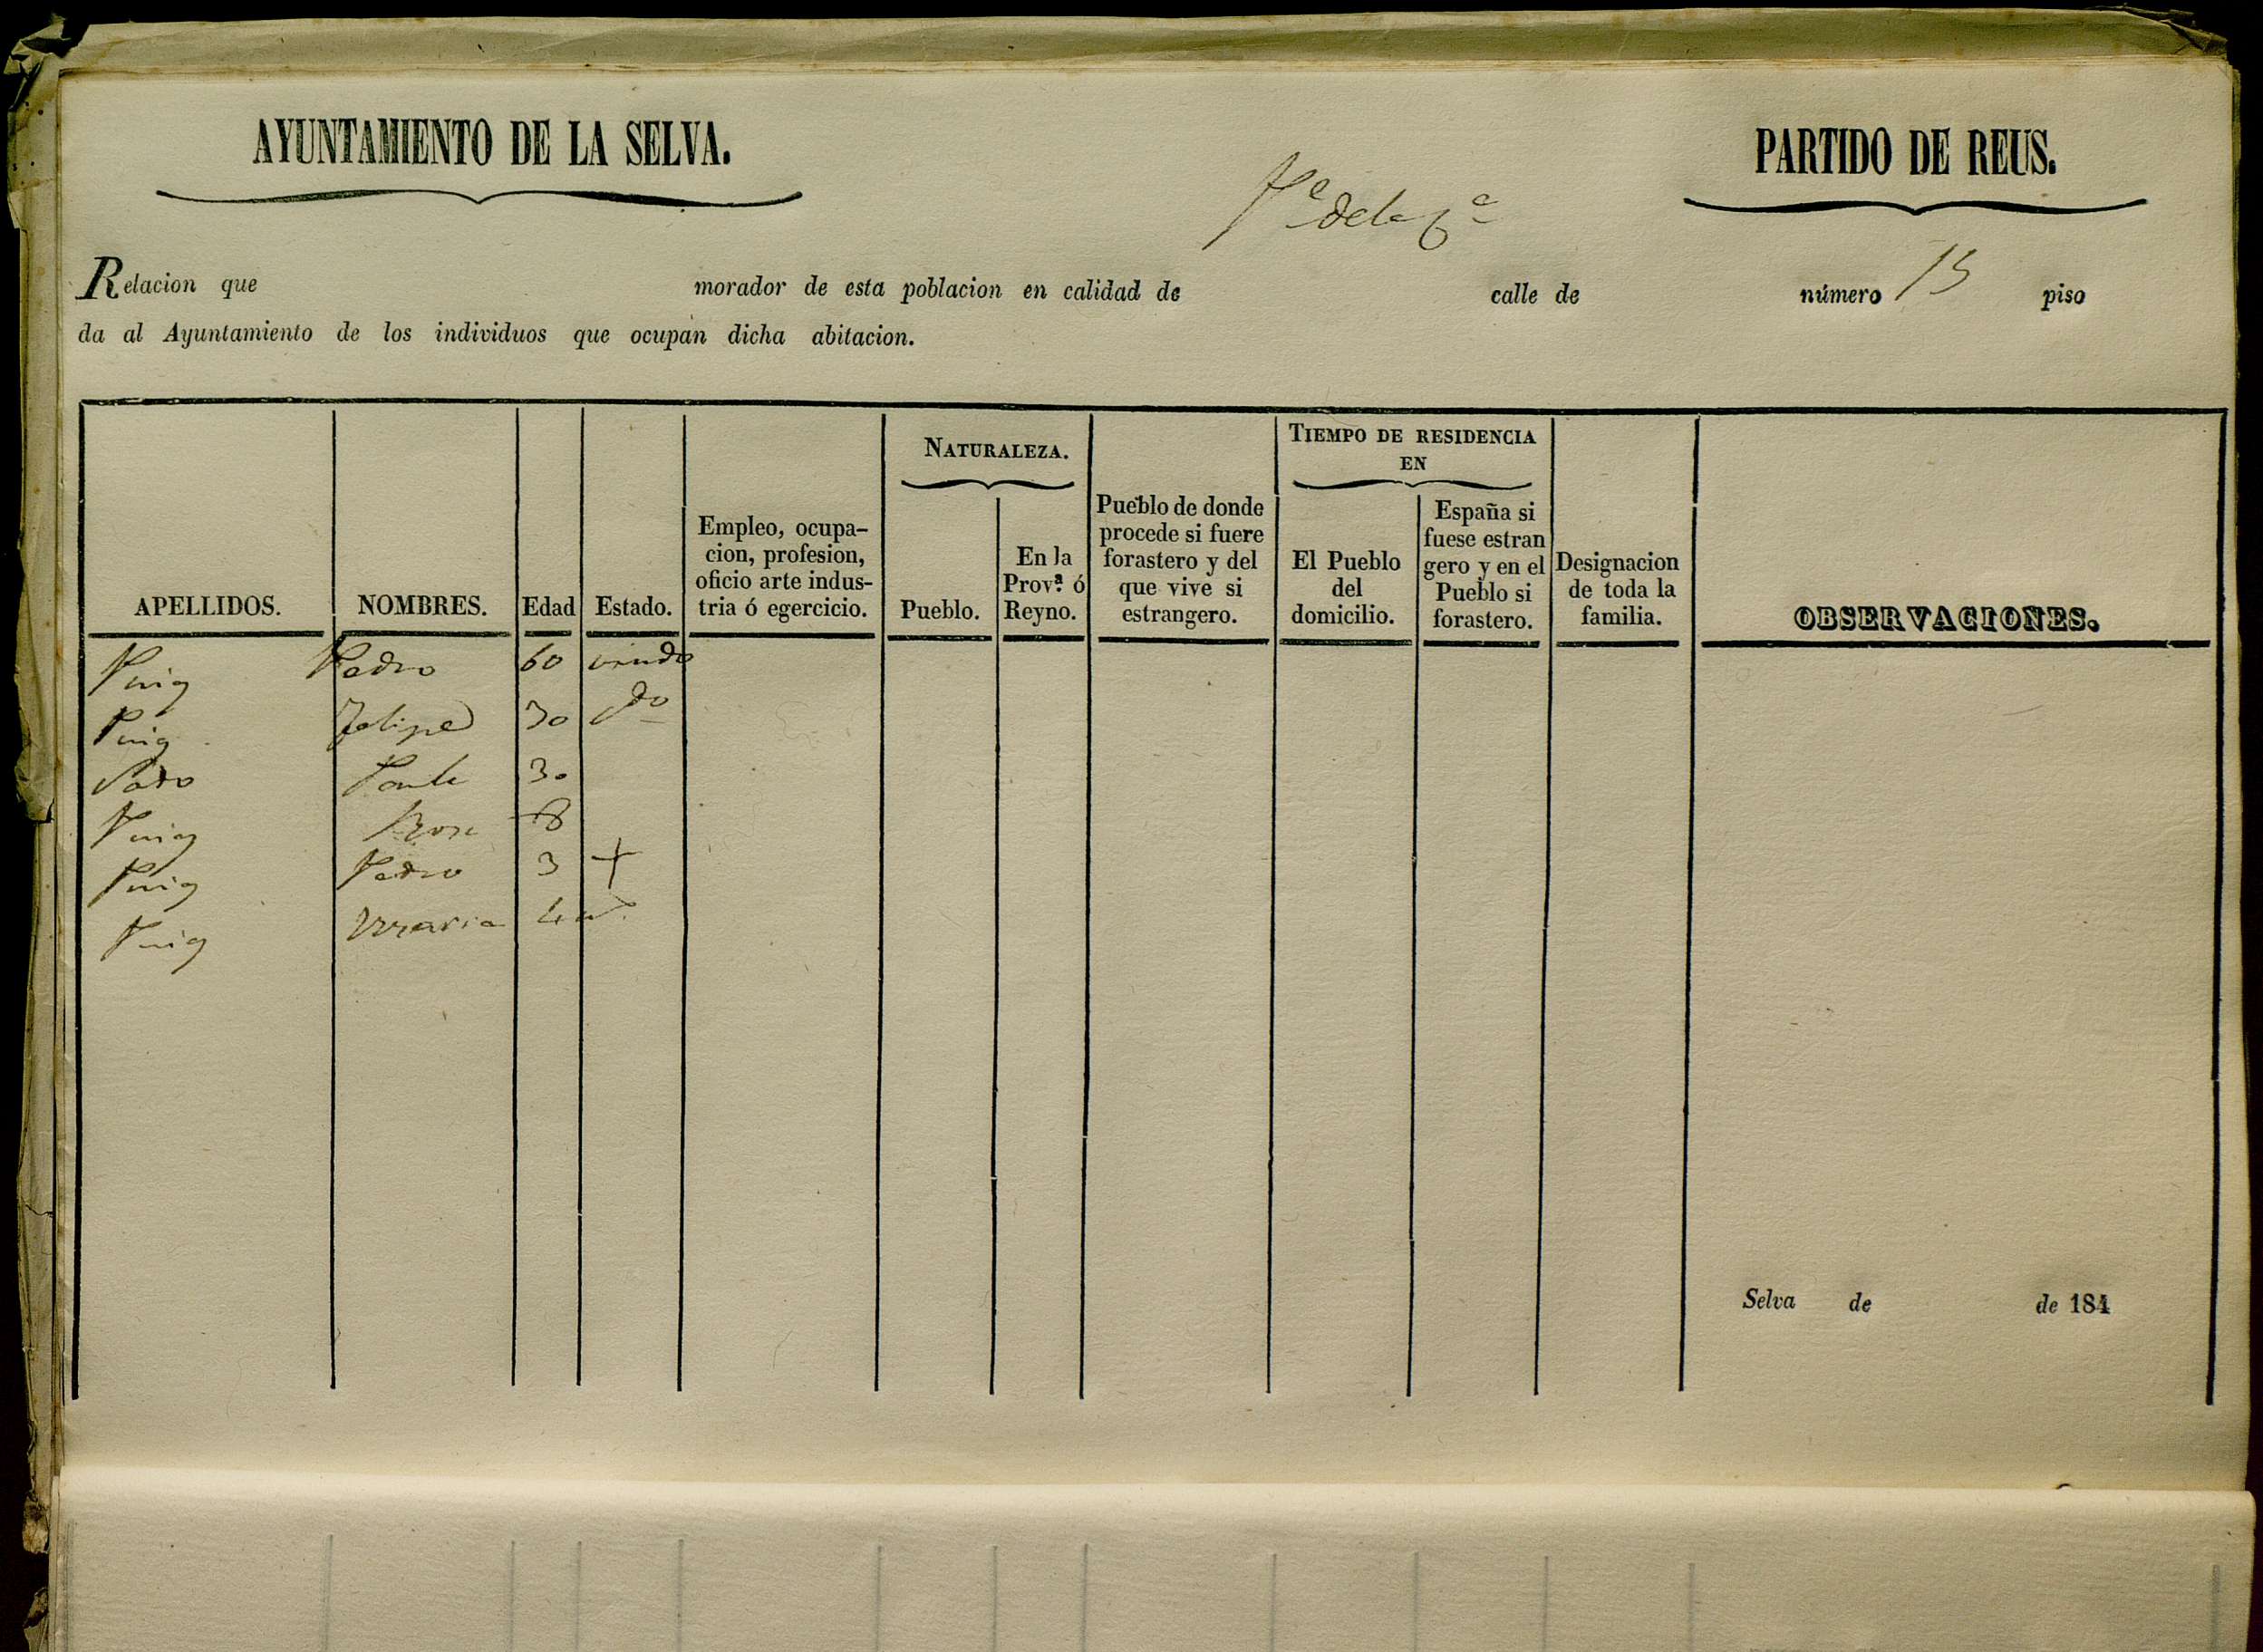 AYUNTAMIENTO DE LA SELVA.
PARTIDO DE REUS.
Relacion que morador de esta poblacion en calidad de calle de número 15 piso
da al Ayuntamiento de los individuos que ocupan dicha abitacion.
NATURALEZA.
TIEMPO DE RESIDENCIA EN
APELLIDOS.
NOMBRES.
Edad
Estado.
Empleo, ocupa-
cion, profesion,
oficio arte indus-
tria ó egercicio.
Pueblo.
En la
Prov.ª ó
Reyno.
Pueblo de donde
procede si fuere
forastero y del
que vive si
estrangero.
El Pueblo
del
domicilio.
España si
fuese estran
gero y en el
Pueblo si
forastero.
Designacion
de toda la
familia.
OBSERVACIONES.
Puig Pedro 60 viudo
Puig Felipe 30 cdo
30
Puig Rosa 8
Puig Pedro 3 +
Puig Maria 4
Selva de de 184